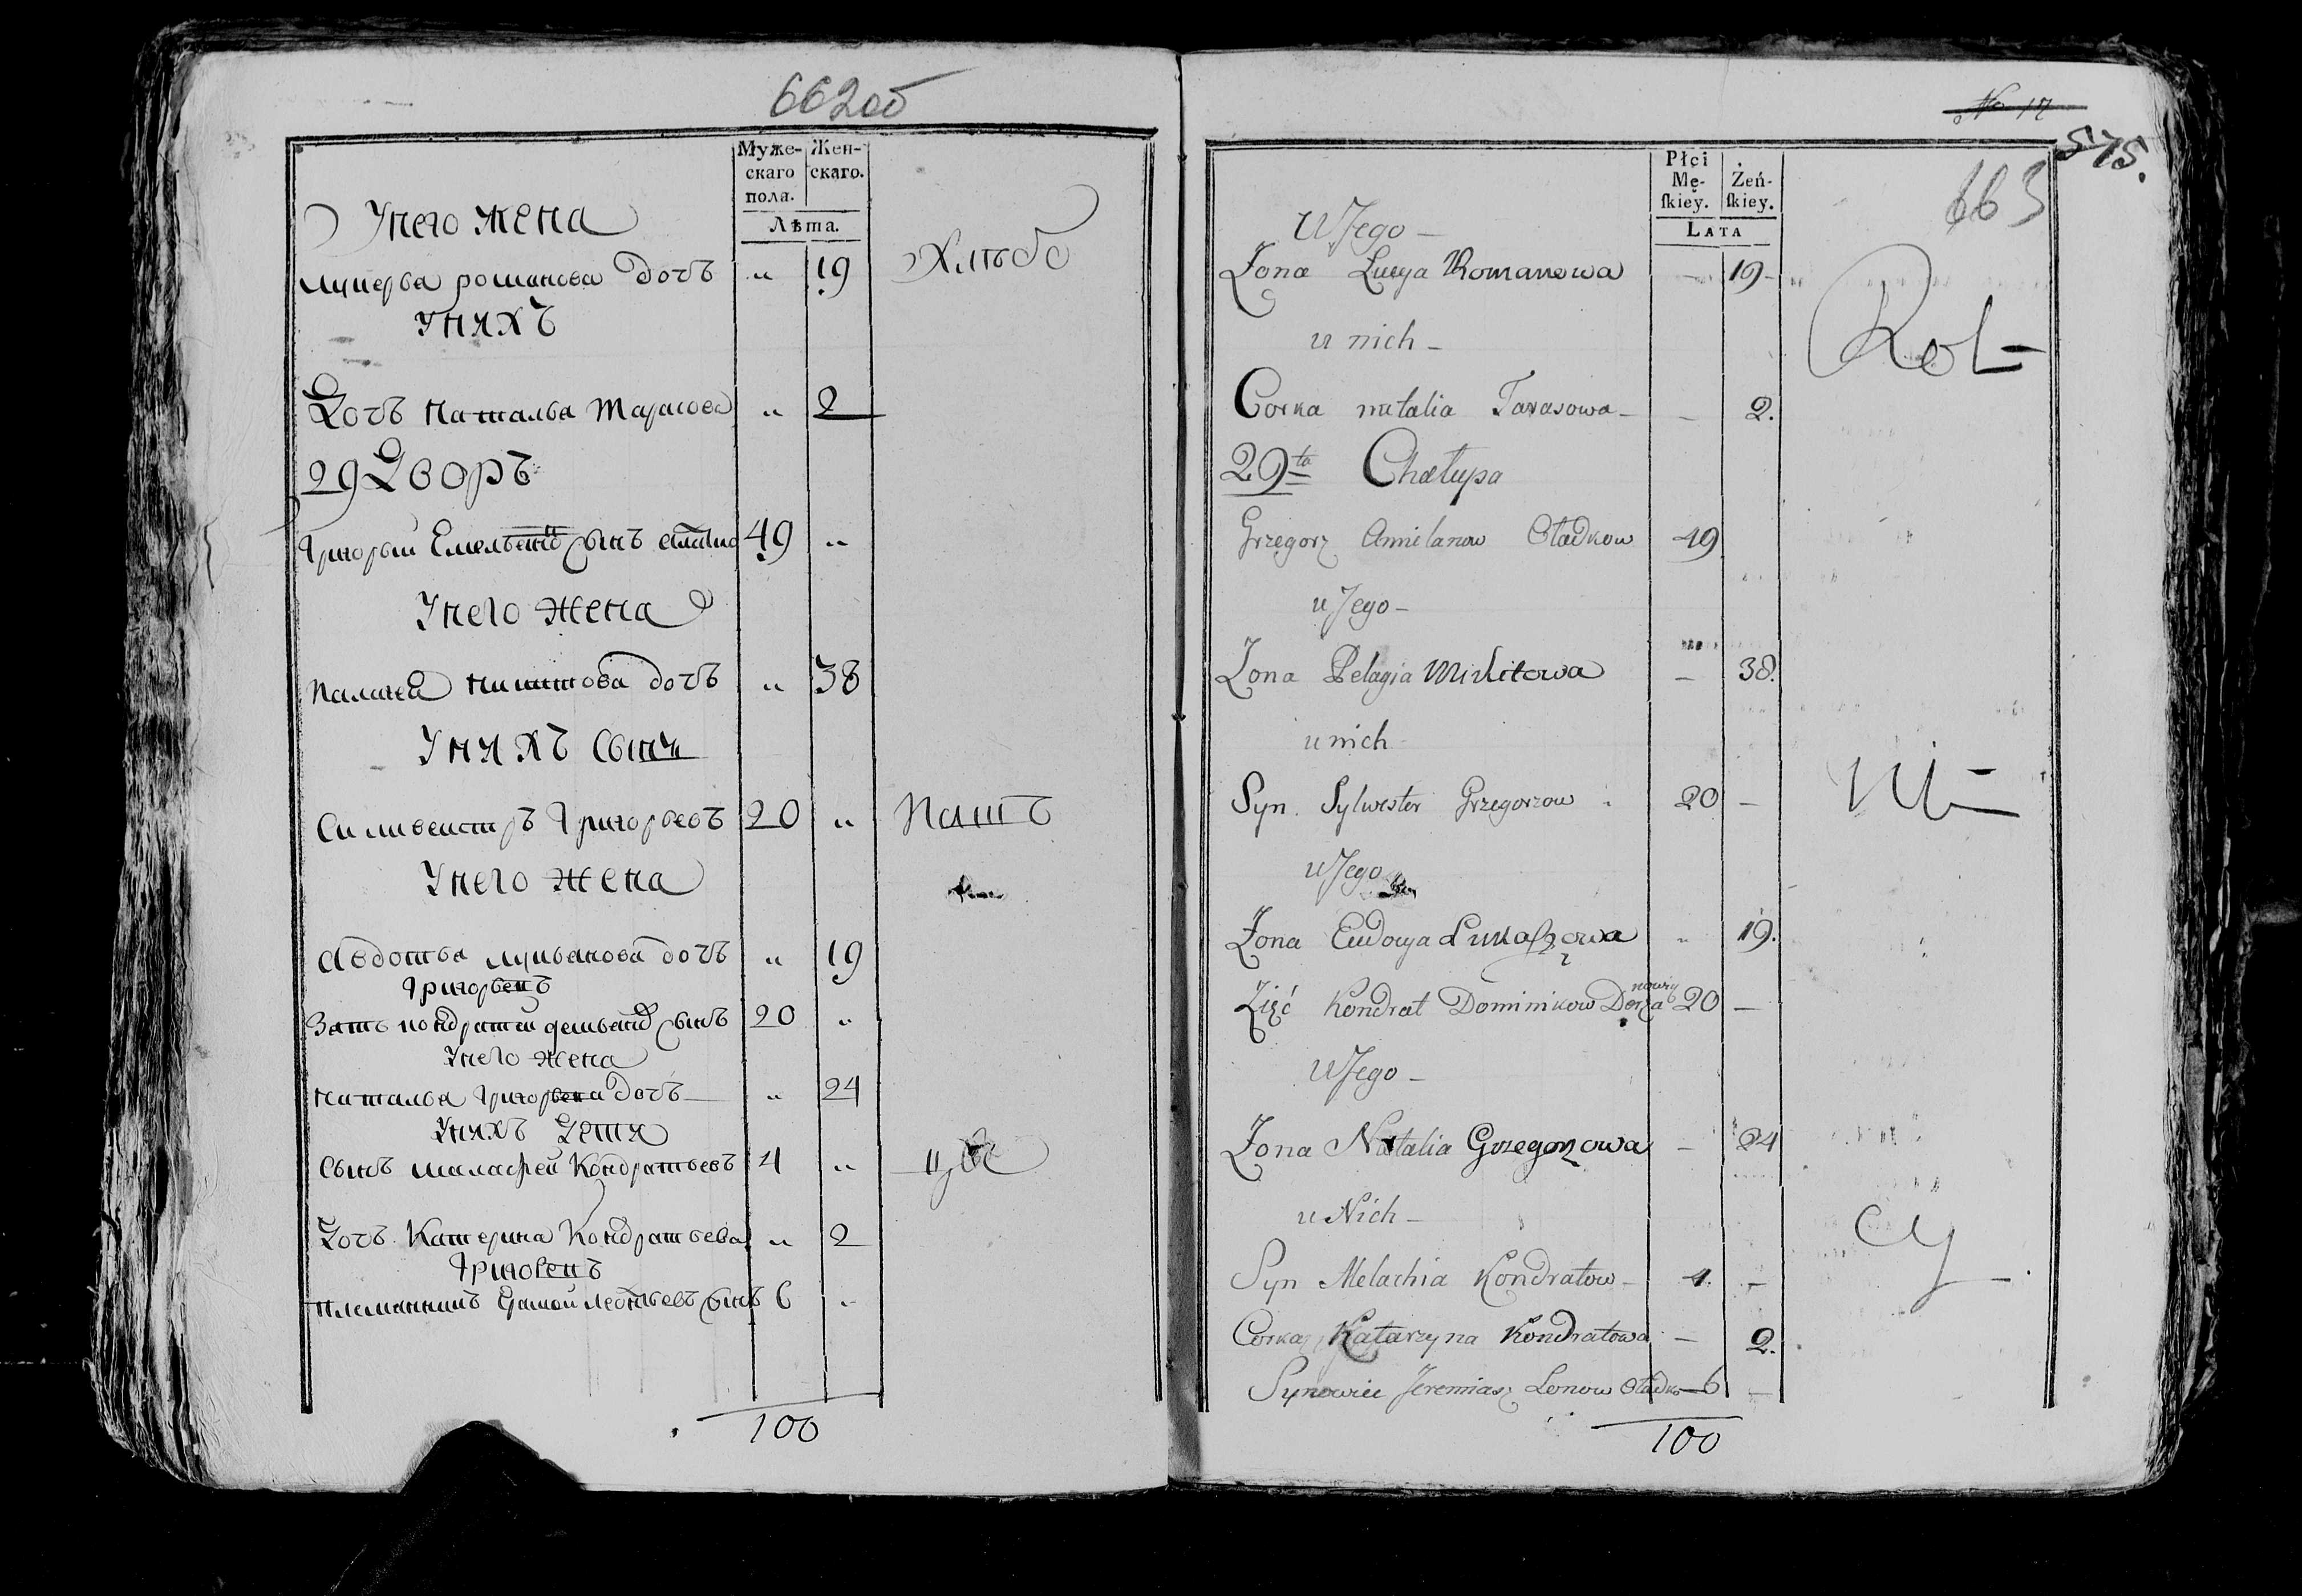 662об
Муже-
скаго
пола.
Жен-
скаго.
Лѣта.
У него жена
Лукерья романова дочъ " 19 Хлѣбо
У нихъ
Дочъ наталья тарасова " 2
29 Дворъ
Григорей Емельянов сынъ 49 "
У него жена
Палагея никитова дочъ " 38
У нихъ сыны
Силивеистръ Григорьевъ 20 " Паш
У него жена
Авдотья лукьянова дочъ " 19
Зять кондратей сынъ 20 "
У него жена
наталья Григорьева дочъ " 24
У нихъ дети
сынъ малафей Кондратьевъ 4 "
Дочъ Катерина Кондратьева " 2
племянникъ сынъ 6 "
100
No 17
575.
663
Płci
Mę-
ſkiey.
Żeń-
ſkiey.
LATA
U Jego –
Żona Łucya Romanowa – 19 –
Rol –
u nich –
Corka natalia Tarasowa – – 2.
29ta Chałupa
Grzegorz Amielanow Oładkow 49
u Jego –
Żona Pelagia Mikitowa – 38.
u nich
Syn Sylwester Grzegorzow 20 –
u Jego
Żona Eudoxya Łukaszowa " 19.
Zięć Kondrat Dominikow 20 –
U Jego –
Żona Natalia Grzegorzowa – 24
u Nich –
Cy –
Syn Melachia Kondratow – 4. –
Corka Katarzyna Kondratowa – 2.
Synowiec Jeremiasz Lonow Oładko 6 –
100